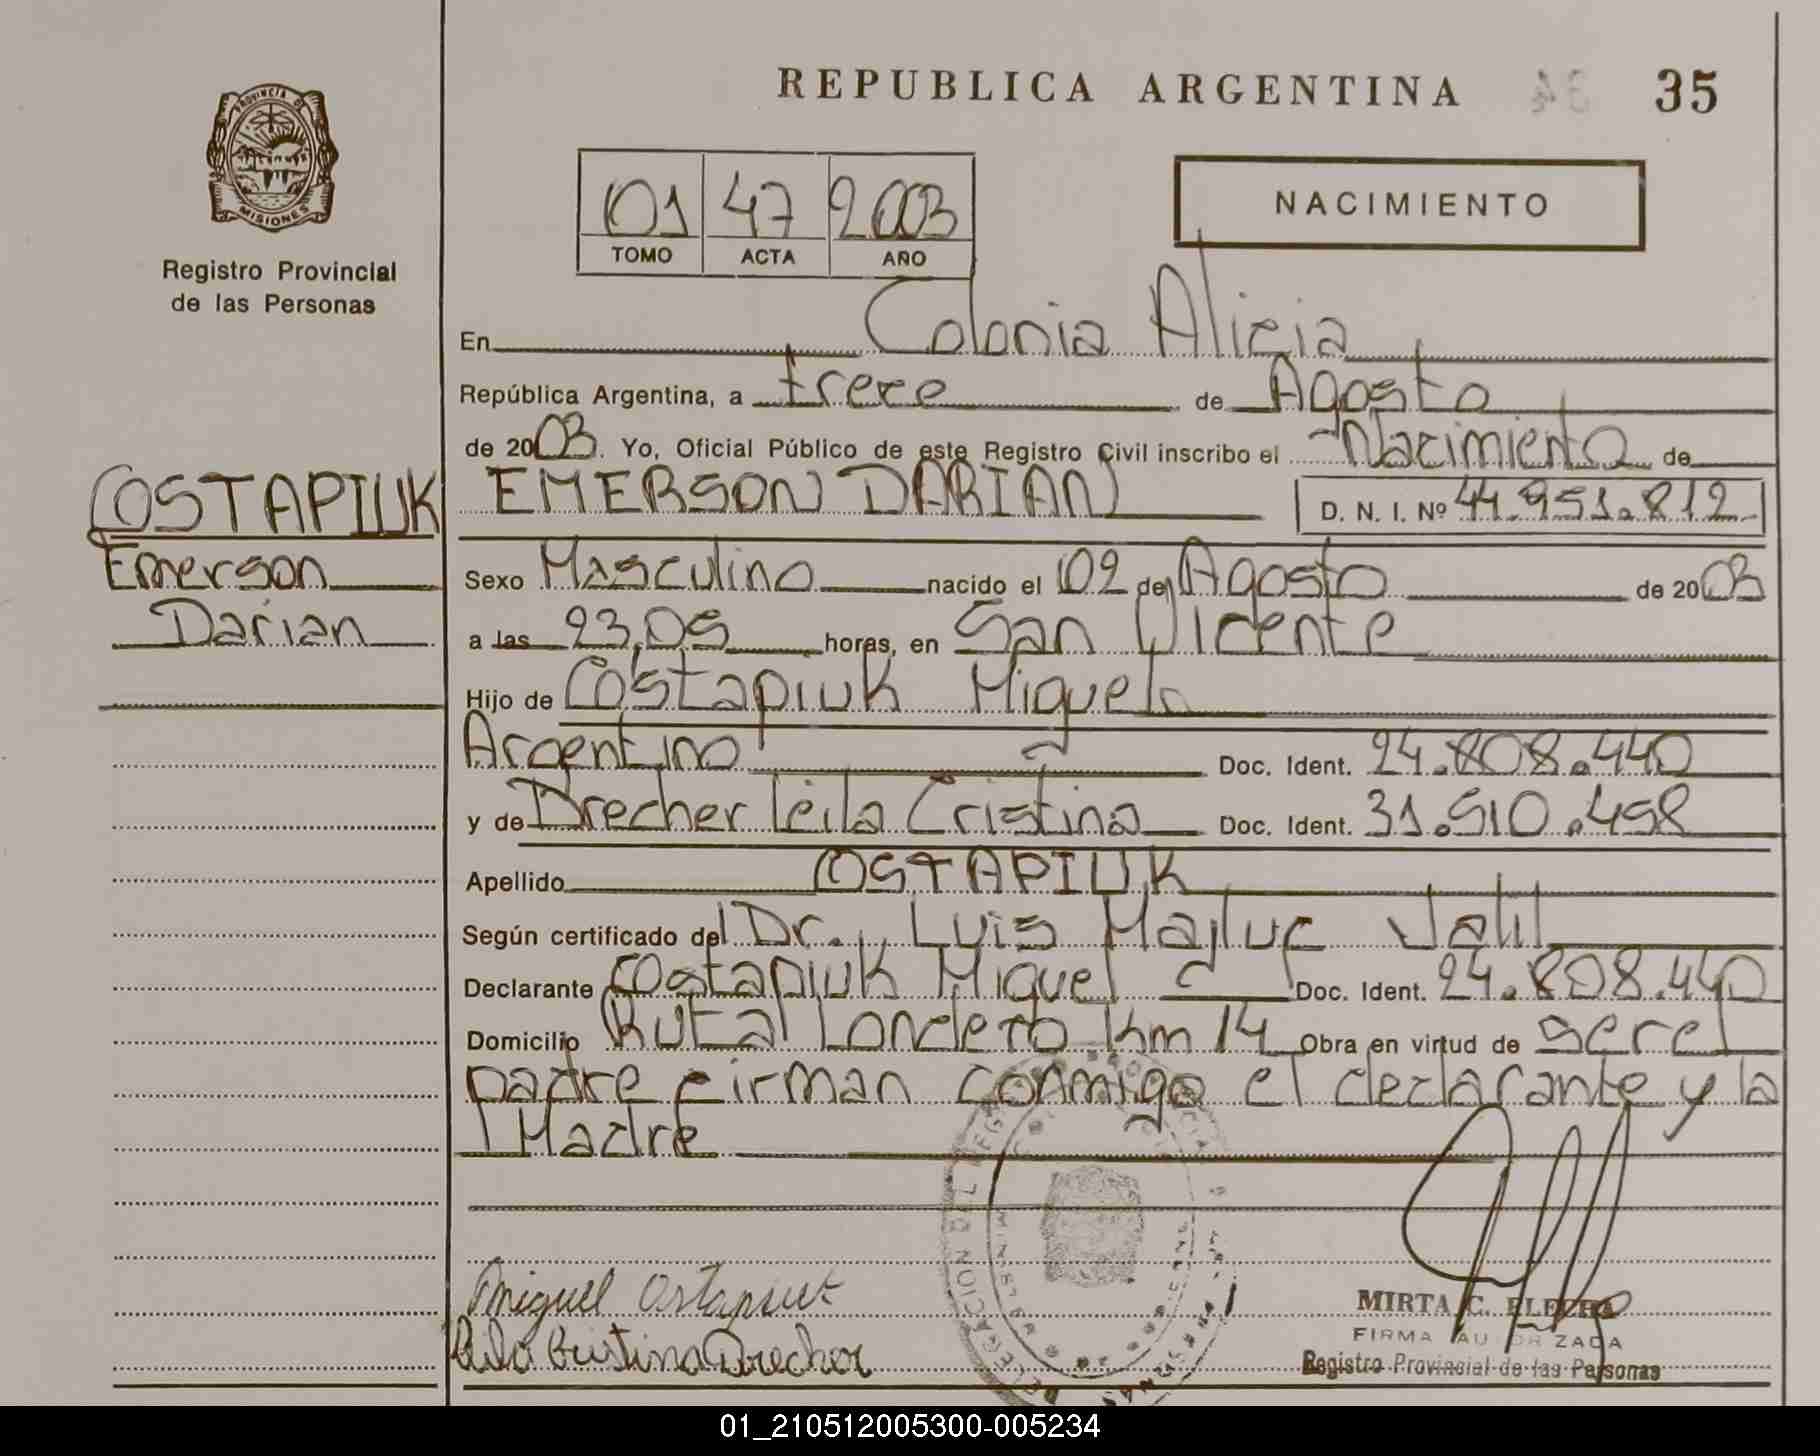 REPUBLICA ARGENTINA 35
PROVINCIA DE
MISIONES
Registro Provincial
de las Personas
01 47 2003
TOMO ACTA AÑO
NACIMIENTO
En Colonia Alicia
República Argentina, a trece de Agosto
de 2003. Yo, Oficial Público de este Registro Civil inscribo el Nacimiento de
OSTAPIUK EMERSON DARIAN D. N. I. Nº 44.951.812
Emerson
Darian
Sexo Masculino nacido el 02 de Agosto de 2003
a las 23,05 horas, en San Vicente
Hijo de Ostapiuk Miguel
Argentino Doc. Ident. 24.808.440
y de Drecher Leila Cristina Doc. Ident. 31.510.458
Apellido OSTAPIUK
Según certificado del Dr. Luis Majluf Jalil
Declarante Ostapiuk Miguel Doc. Ident. 24.808.440
Domicilio Ruta Londero Km 14 Obra en virtud de ser el
padre firman conmigo el declarante y la
Madre
Miguel Ostapiuk
Leila Cristina Drecher
MIRTA C.
FIRMA AUTORIZADA
Registro Provincial de las Personas
01_210512005300-005234